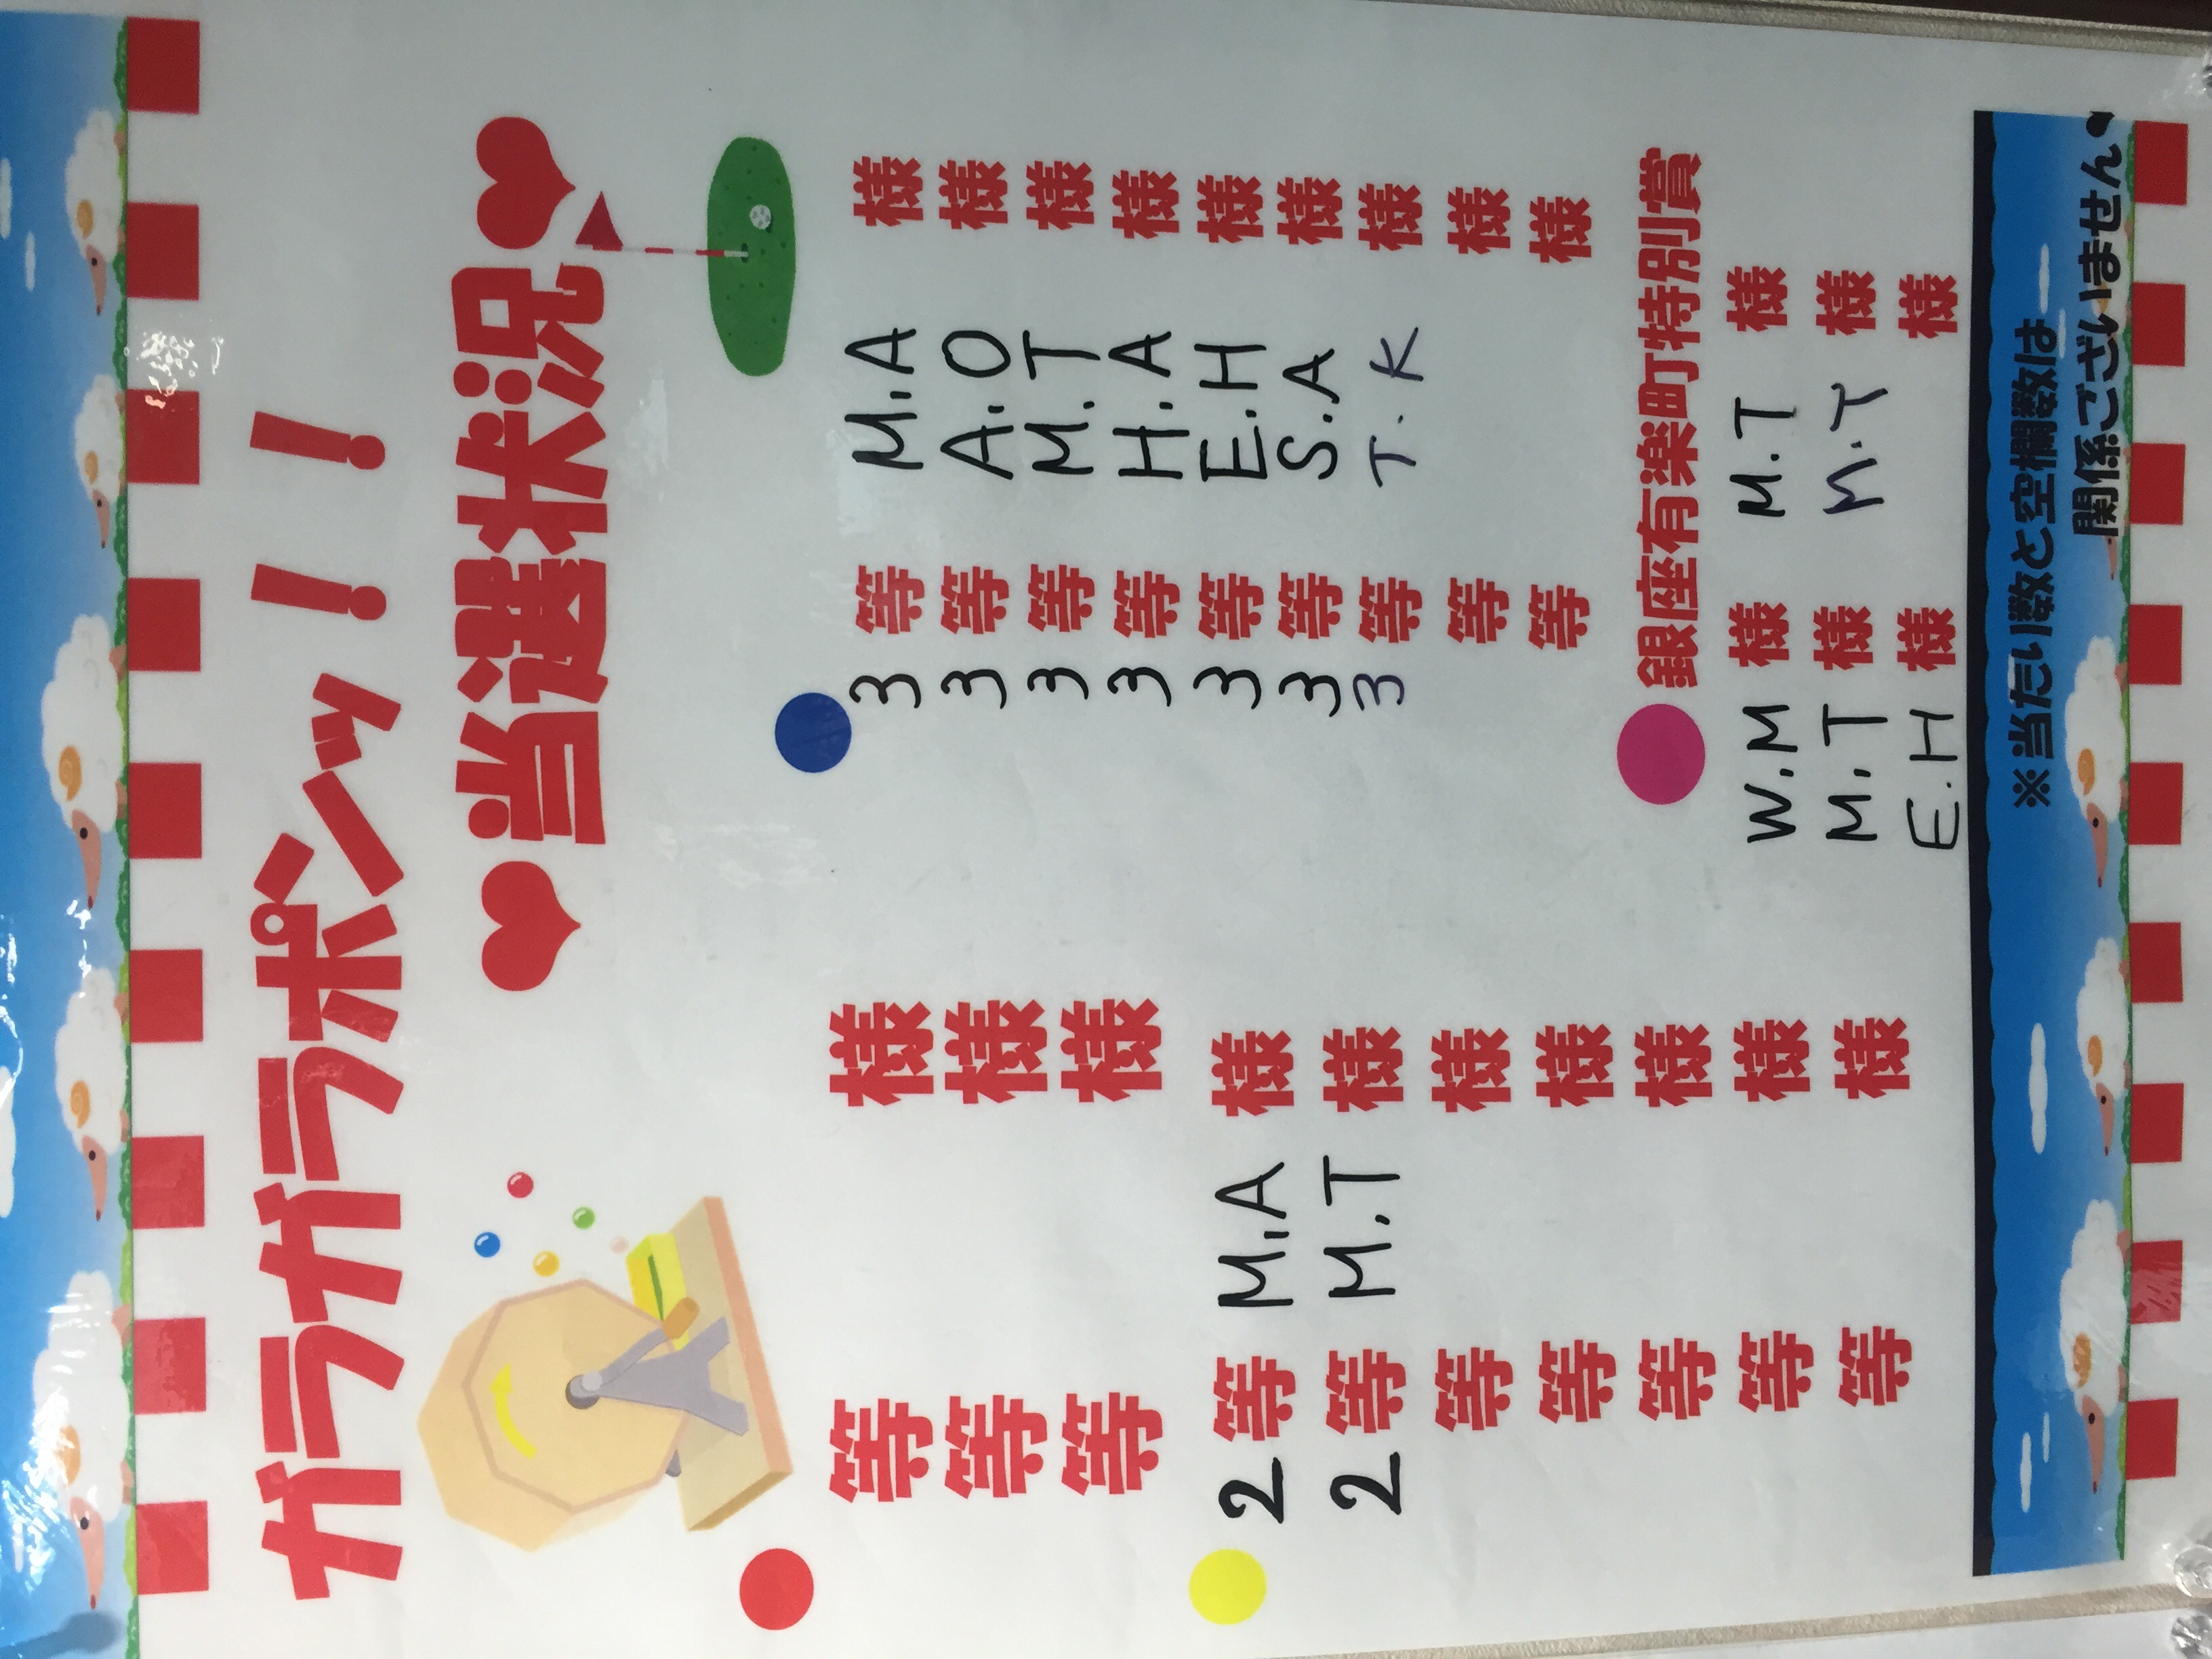 ガラガラポンッ！！
♥当選状況♥
等 様
等 様
等 様
2等 M.A 様
2等 M.T 様
等 様
等 様
等 様
等 様
等 様
3等 M.A 様
3等 A.O 様
3等 M.T 様
3等 H.A 様
3等 E.H 様
3等 S.A 様
3等 T.K 様
等 様
等 様
銀座有楽町特別賞
W.M 様 M.T 様
M.T 様 M.T 様
E.H 様 様
※当たり数と空欄数は
関係ございません